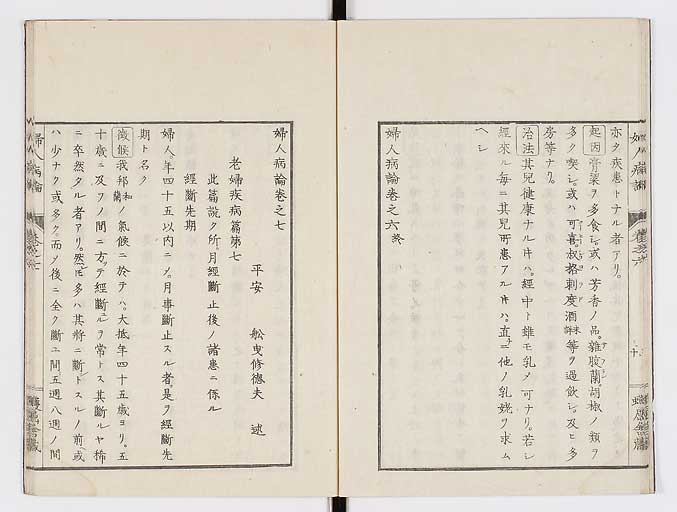 亦タ疾患トナル者アリ。
起因膏粱ヲ多食シ。或ハ芳香ノ品。雜腹蘭胡椒ノ類ヲ
多ク喫シ。或ハ可喜。叔格剌度酒等ヲ過飲シ。及ヒ多
房等ナリ。
治法其兒健康ナル時ハ。經中ト雖モ乳メ可ナリ。若シ
經來ル毎ニ其兒所患アル時ハ。直ニ他ノ乳姥ヲ求ム
ヘシ
婦人病論卷之六終
婦人病論卷之七
平安 舩曳修德夫 述
老婦疾病篇第七
此篇說ク所。月經斷止後ノ諸患ニ係ル
經斷先期
婦人。年四十五以内ニメ。月事斷止スル者。是ヲ經斷先
期ト名ク
徵候我邦和蘭ノ氣候ニ於テハ。大抵年四十五歳ヨリ。五
十歳ニ及フノ間ニ方テ經斷ルヲ常トス其斷ルヤ稀
ニ卒然タル者アリ。然トモ多ハ其將ニ斷トスルノ前。或
ハ少ナク或多ク。而メ後ニ全ク斷ニ間五週八週ノ間
婦人病論